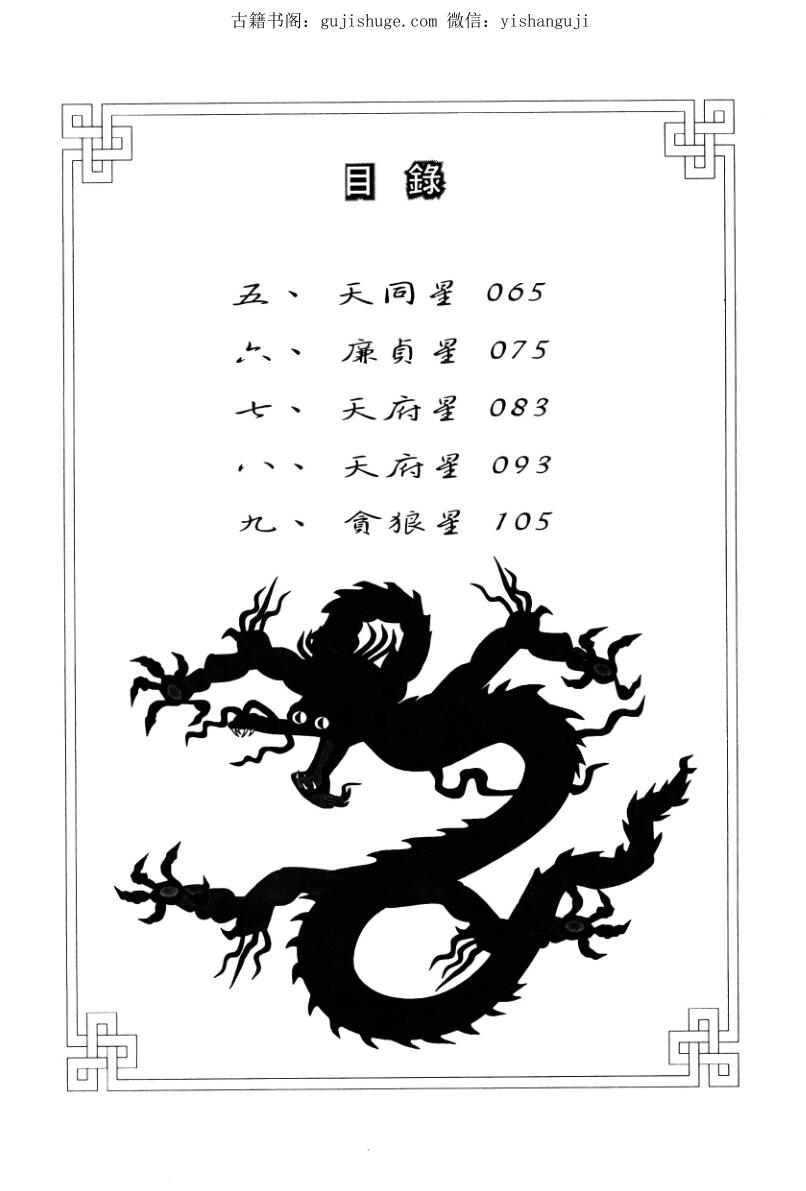 古籍书阁：gujishuge.com 微信：yishanguji
目錄
五、天同星 065
六、廉貞星 075
七、天府星 083
八、天府星 093
九、貪狼星 105